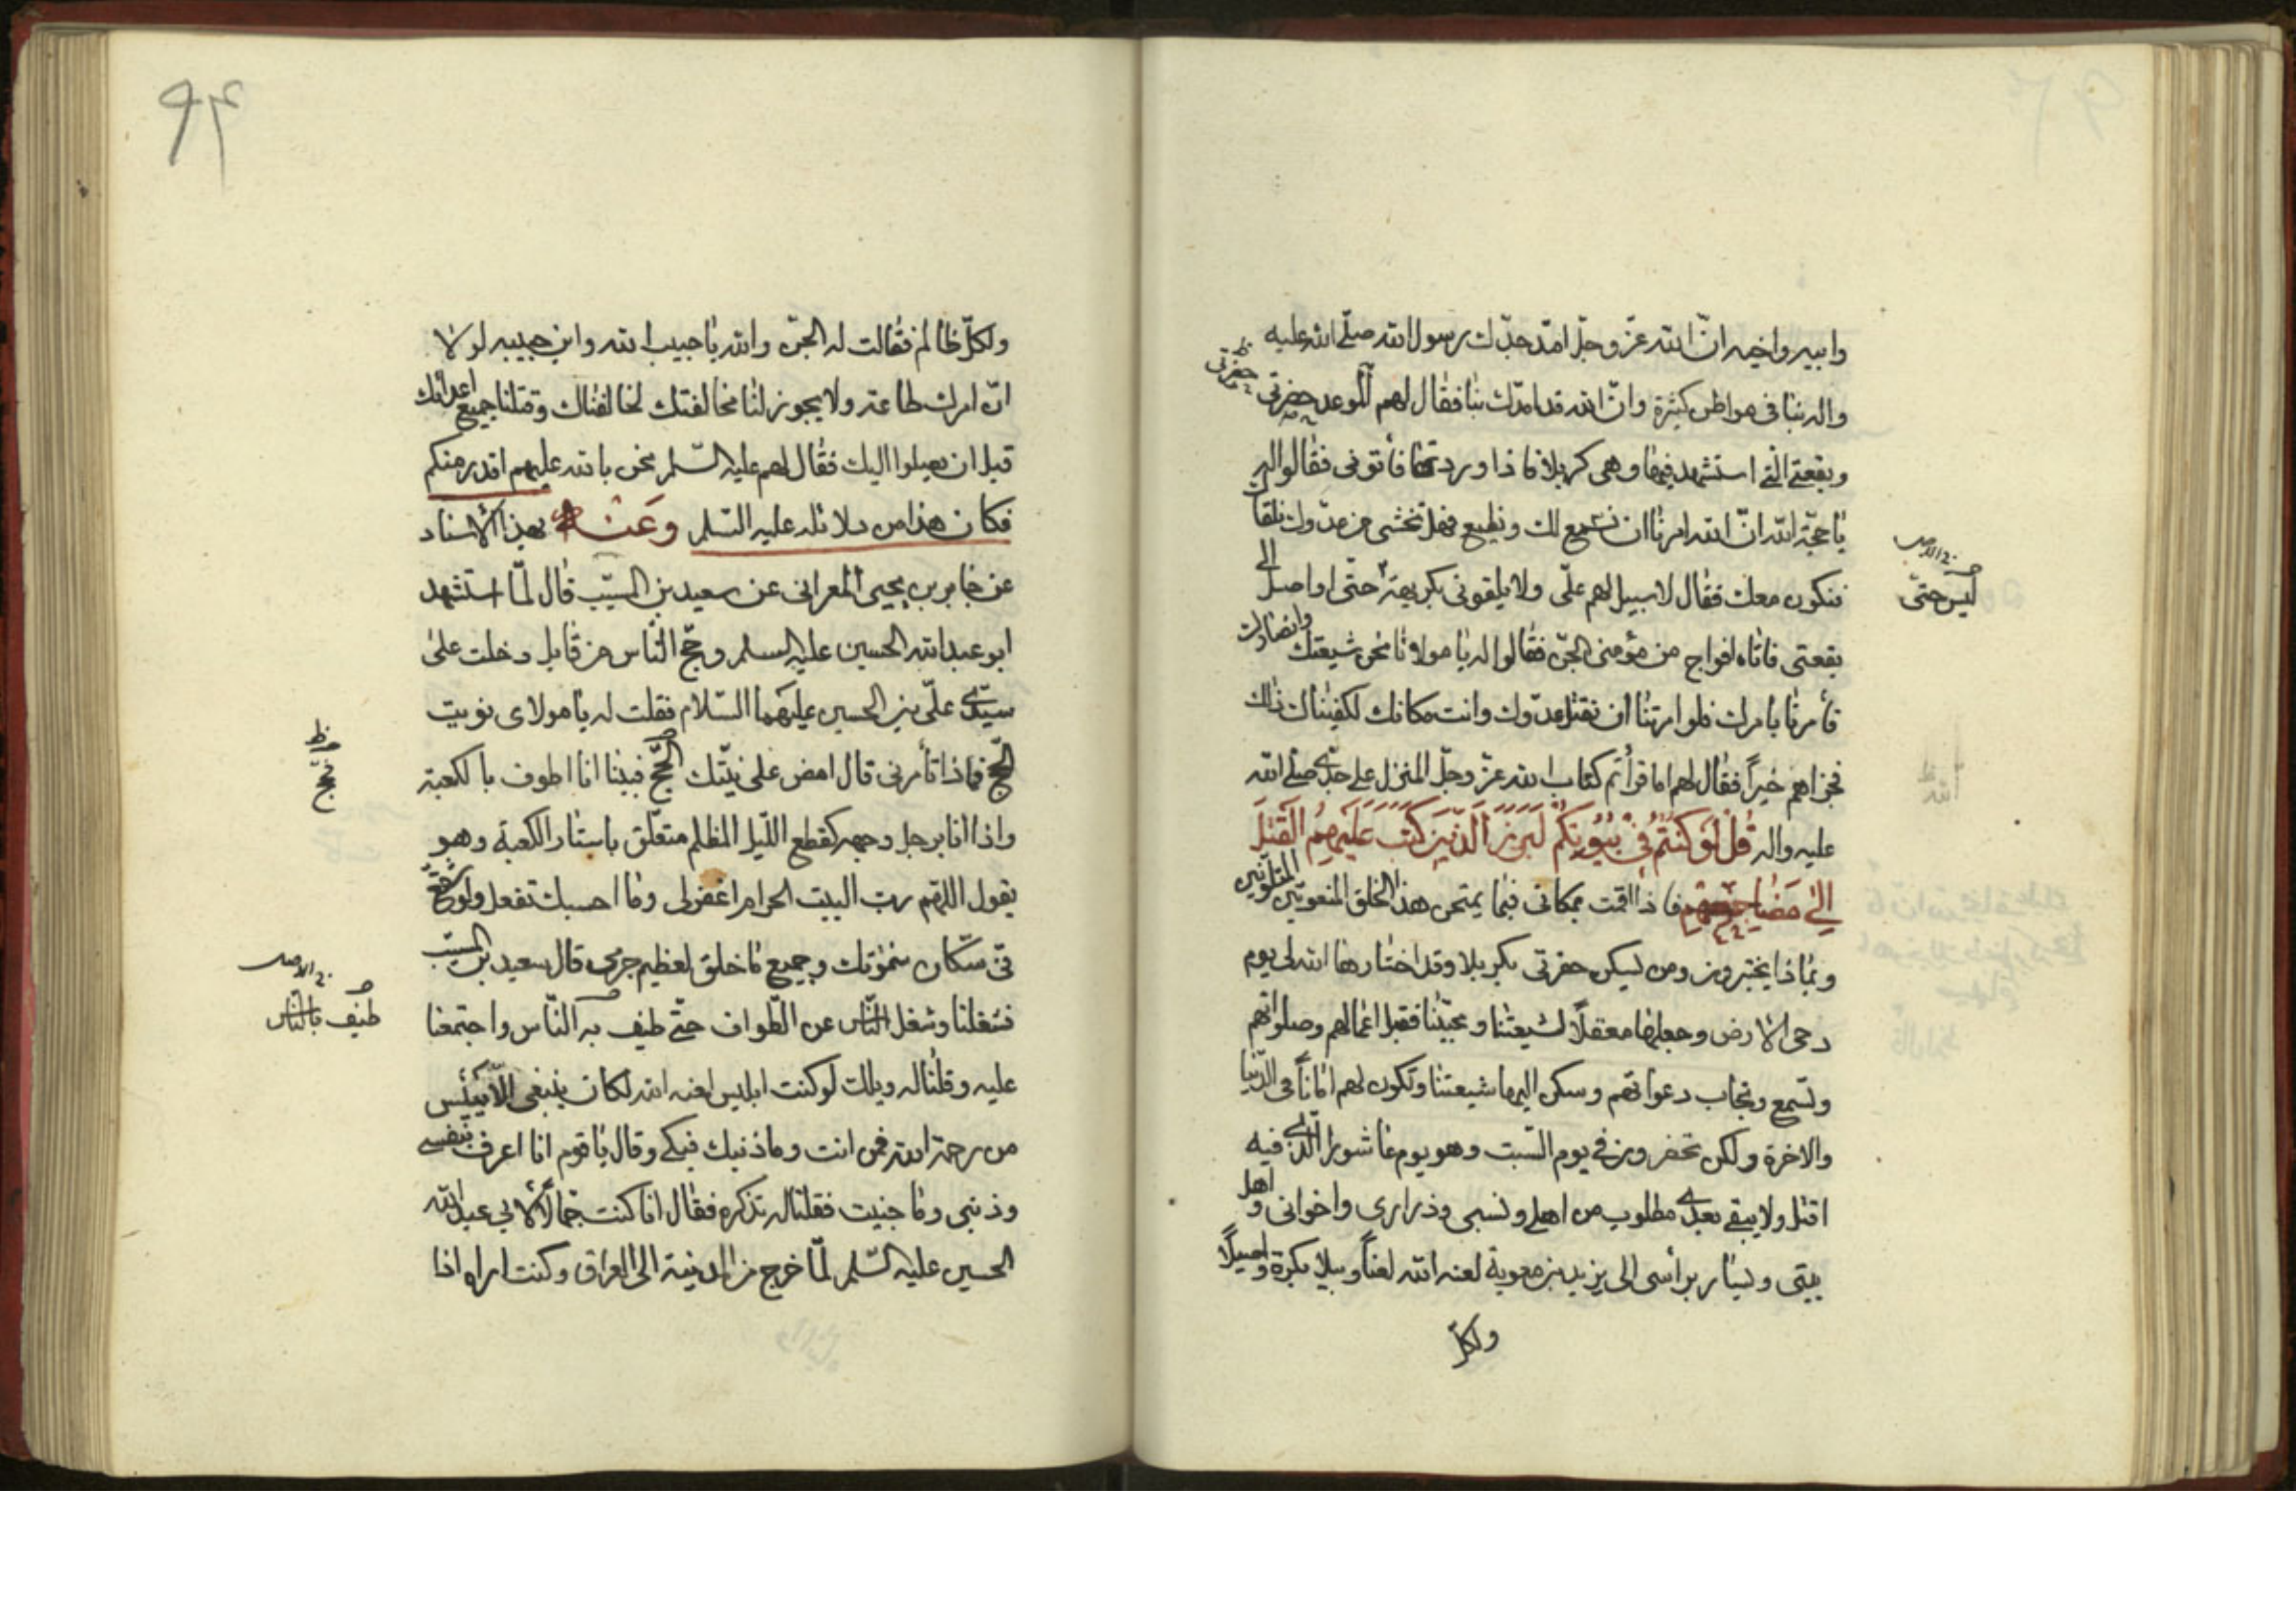 وابيه واخيه انّ الله عزّ وجلّ امدّ جدّك رسول الله صلّى الله عليه
واله بنا فى مواطن كثيرة وانّ الله قد امدّك بنا فقال لهم الموعد حفرتى
ظ حفرتى
وبقعتى الّتى استشهد فيها وهى كربلا فاذا وردتها فأتونى فقالوا له
يا حجّة الله انّ الله امرنا ان نسمع لك ونطيع فهل تخشى من عدّوك تلقاك
فنكون معك فقال لا سبيل لهم علىّ ولا يلقونى بكريهة حتّى او اصل الى
ليس حتّى
فى الاصل
بقعتى فاتاه افواج من مؤمنى الجنّ فقالوا له يا مولانا نحن شيعتك وانصارك
فأمرنا بامرك فلو امرتنا ان نقتل عدّوك وانت مكانك لكفيناك ذلك
فجزاهم خيراً فقال لهم اما قرأتم كتاب الله عزّ وجلّ المنزل على جدّى صلّى الله
عليه واله قُلْ لَوْ كُنْتُمْ فِي بُيُوتِكُمْ لَبَرَزَ الَّذِينَ كُتِبَ عَلَيْهِمُ الْقَتْلُ
اِلىٰ مَضٰاجِعِهِمْ فاذا اقمت بمكانى فبما يمتحن هذا الخلق المتعوس
وبماذا يختبرون ومن ليسكن حفرتى بكربلا وقد اختارها الله لى يوم
دحى الارض وجعلها معقلًا لشيعتنا ومحبّينا فقبل اعمالهم وصلواتهم
وتسمع وتجاب دعواتهم وسكن اليها شيعتنا وتكون لهم اماناً فى الدّنيا
والاخرة ولكن تحضرون فى يوم السّبت وهو يوم عاشورا الّذى فيه
اقتل ولا يبقى بعدى مطلوب من اهلى ونسبى وذرارى واخوانى واهل
بيتى ويسار برأسى الى يزيد بن معوية لعنه الله لعناً وبيلا بكرة واصيلًا
ولكلّ
٩٣
ولكلّ ظالم فقالت له الجنّ والله يا حبيب الله وابن حبيبه لولا
انّ امرك طاعة ولا يجوز لنا مخالفتك لخالفناك وقتلنا جميع اعدائك
قبل ان يصلوا اليك فقال لهم عليه السّلم نحن بالله عليهم اقدر منكم
فكان هذا من دلائله عليه السّلم وَعَنْه بهذا الاسناد
عن جابر بن يحيى المعرانى عن سعيد بن المسيّب قال لمّا استشهد
ابو عبد الله الحسين عليه السلم وحجّ النّاس من قابل دخلت على
سيّدى علىّ بن الحسين عليهما السّلام فقلت له يا مولاى نويت
الحجّ فماذا تأمرنى قال امض على نيّتك الحجّ فبينا انا اطوف بالكعبة
ظ
فحجّ
واذا انا برجل وجهه كقطع اللّيل المظلم متعلّق باستار الكعبة وهو
يقول اللهم ربّ البيت الحرام اغفر لى وما احسبك تفعل ولو شفع
فىّ سكّان سمواتك وجميع ما خلق لعظيم جرمى قال سعيد بن المسيّب
فشغلنا وشغل النّاس عن الطّواف حتّى طيف به النّاس واجتمعنا
فى الاصل
طيف بالنّاس
عليه وقلنا له ويلك لو كنت ابليس لعنه الله لكان ينبغى الّا تيئس
من رحمة الله فمن انت وماذنبك فبكى وقال يا قوم انا اعرف بنفسى
وذنبى وما جنيت فقلنا له تذكره فقال انا كنت جمّالًا لابى عبد الله
الحسين عليه السّلم لمّا خرج من المدينة الى العراق وكنت اراه اذا